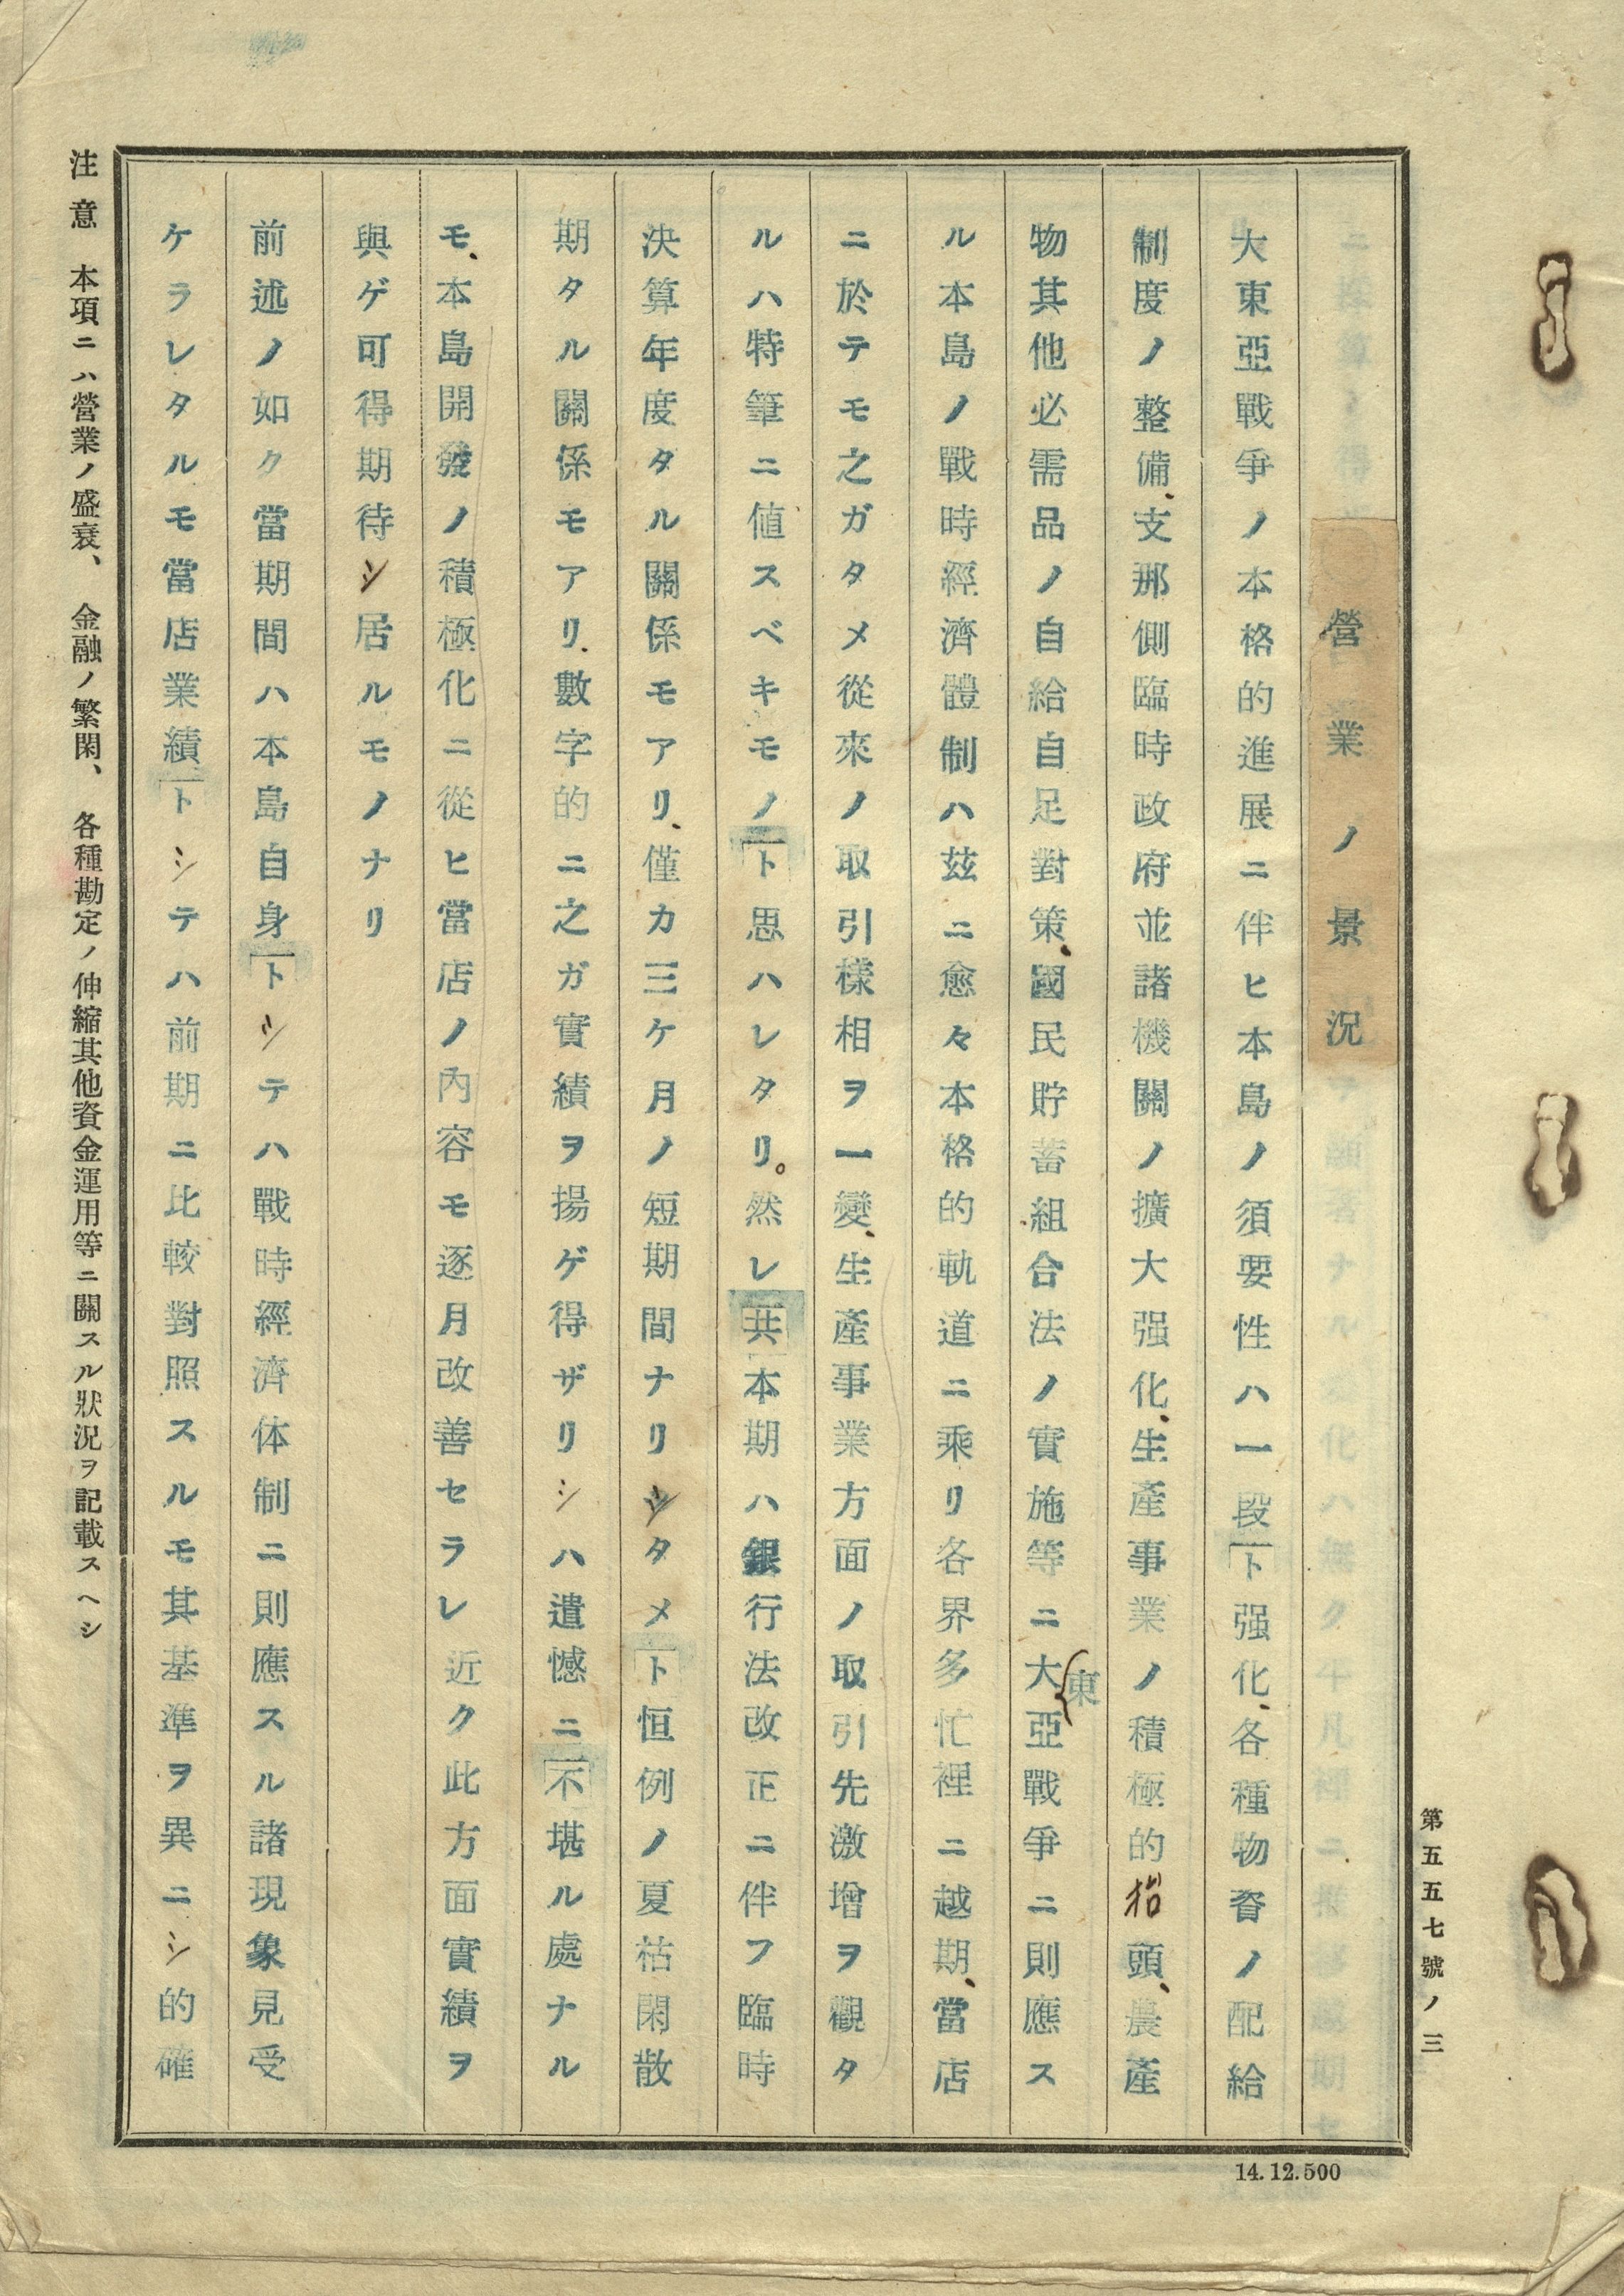 第五五七號ノ三
營業ノ景況
大東亞戰爭ノ本格的進展ニ伴ヒ本島ノ須要性ハ一段ト强化、各種物資ノ配給
制度ノ整備、支那側臨時政府並諸機關ノ擴大强化、生產事業ノ積極的抬頭、農產
物其他必需品ノ自給自足對策、國民貯蓄組合法ノ實施等ニ大東亞戰爭ニ則應ス
ル本島ノ戰時經濟體制ハ玆ニ愈々本格的軌道ニ乘リ各界多忙裡ニ越期、當店
ニ於テモ之ガタメ從來ノ取引樣相ヲ一變、生產事業方面ノ取引先激增ヲ觀タ
ルハ特筆ニ値スベキモノト思ハレタリ。然レ共本期ハ銀行法改正ニ伴フ臨時
決算年度タル關係モアリ、僅カ三ケ月ノ短期間ナリシタメト恒例ノ夏枯閑散
期タル關係モアリ、數字的ニ之ガ實績ヲ揚ゲ得ザリシハ遺憾ニ不堪ル處ナル
モ、本島開發ノ積極化ニ從ヒ當店ノ內容モ逐月改善セラレ近ク此方面實績ヲ
與ゲ可得期待シ居ルモノナリ
前述ノ如ク當期間ハ本島自身トシテハ戰時經濟体制ニ則應スル諸現象見受
ケラレタルモ當店業績トシテハ前期ニ比較對照スルモ其基準ヲ異ニシ的確
注意 本項ニハ營業ノ盛衰、金融ノ繁閑、各種勘定ノ伸縮其他資金運用等ニ關スル狀況ヲ記載スヘシ
14.12.500